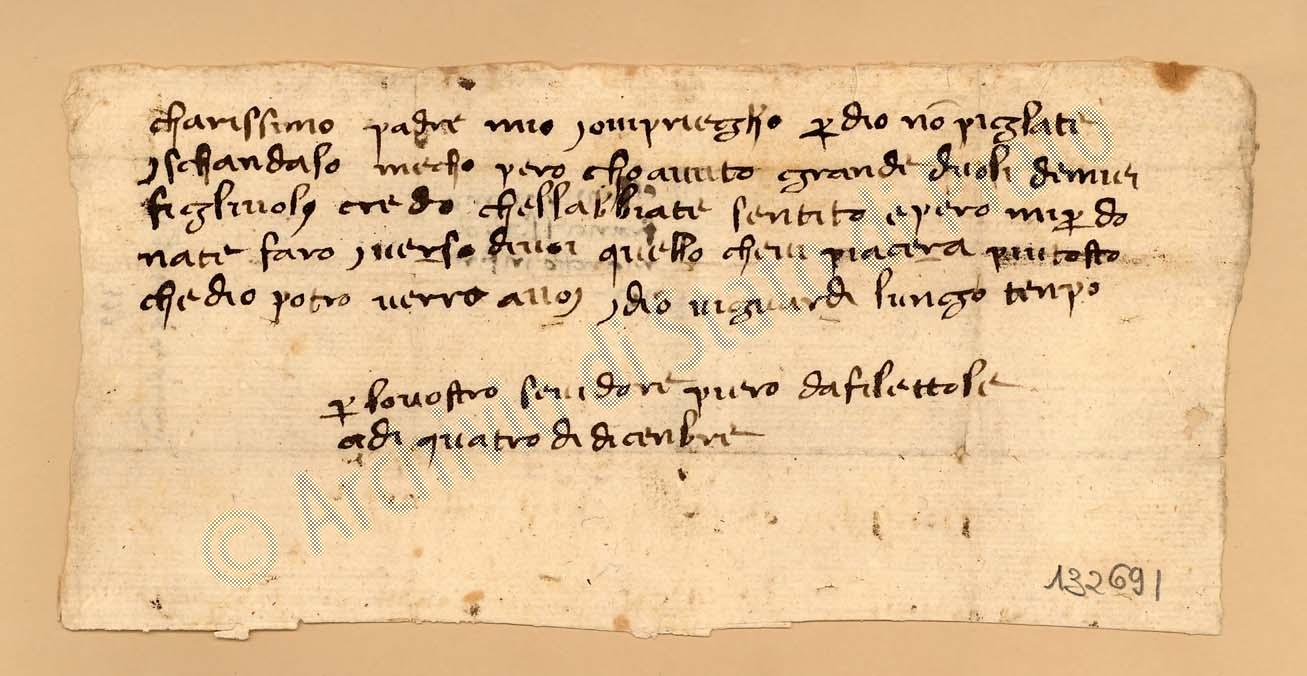 charissimo padre mio jo vi priegho per dio nō piglate
jschandalo mecho pero cho avuto grande duoli de miei
figliuolj credo chellabbiate sentito e pero mi perdo
nate faro jverso di voi quello che vi piacera piu tosto
che dio potro verro a voj jdio vi guardi lungo tenpo
per lo vostro servidore piero da filettole
adi quatro di dicenbre
© Archivio di Stato di Prato
132691